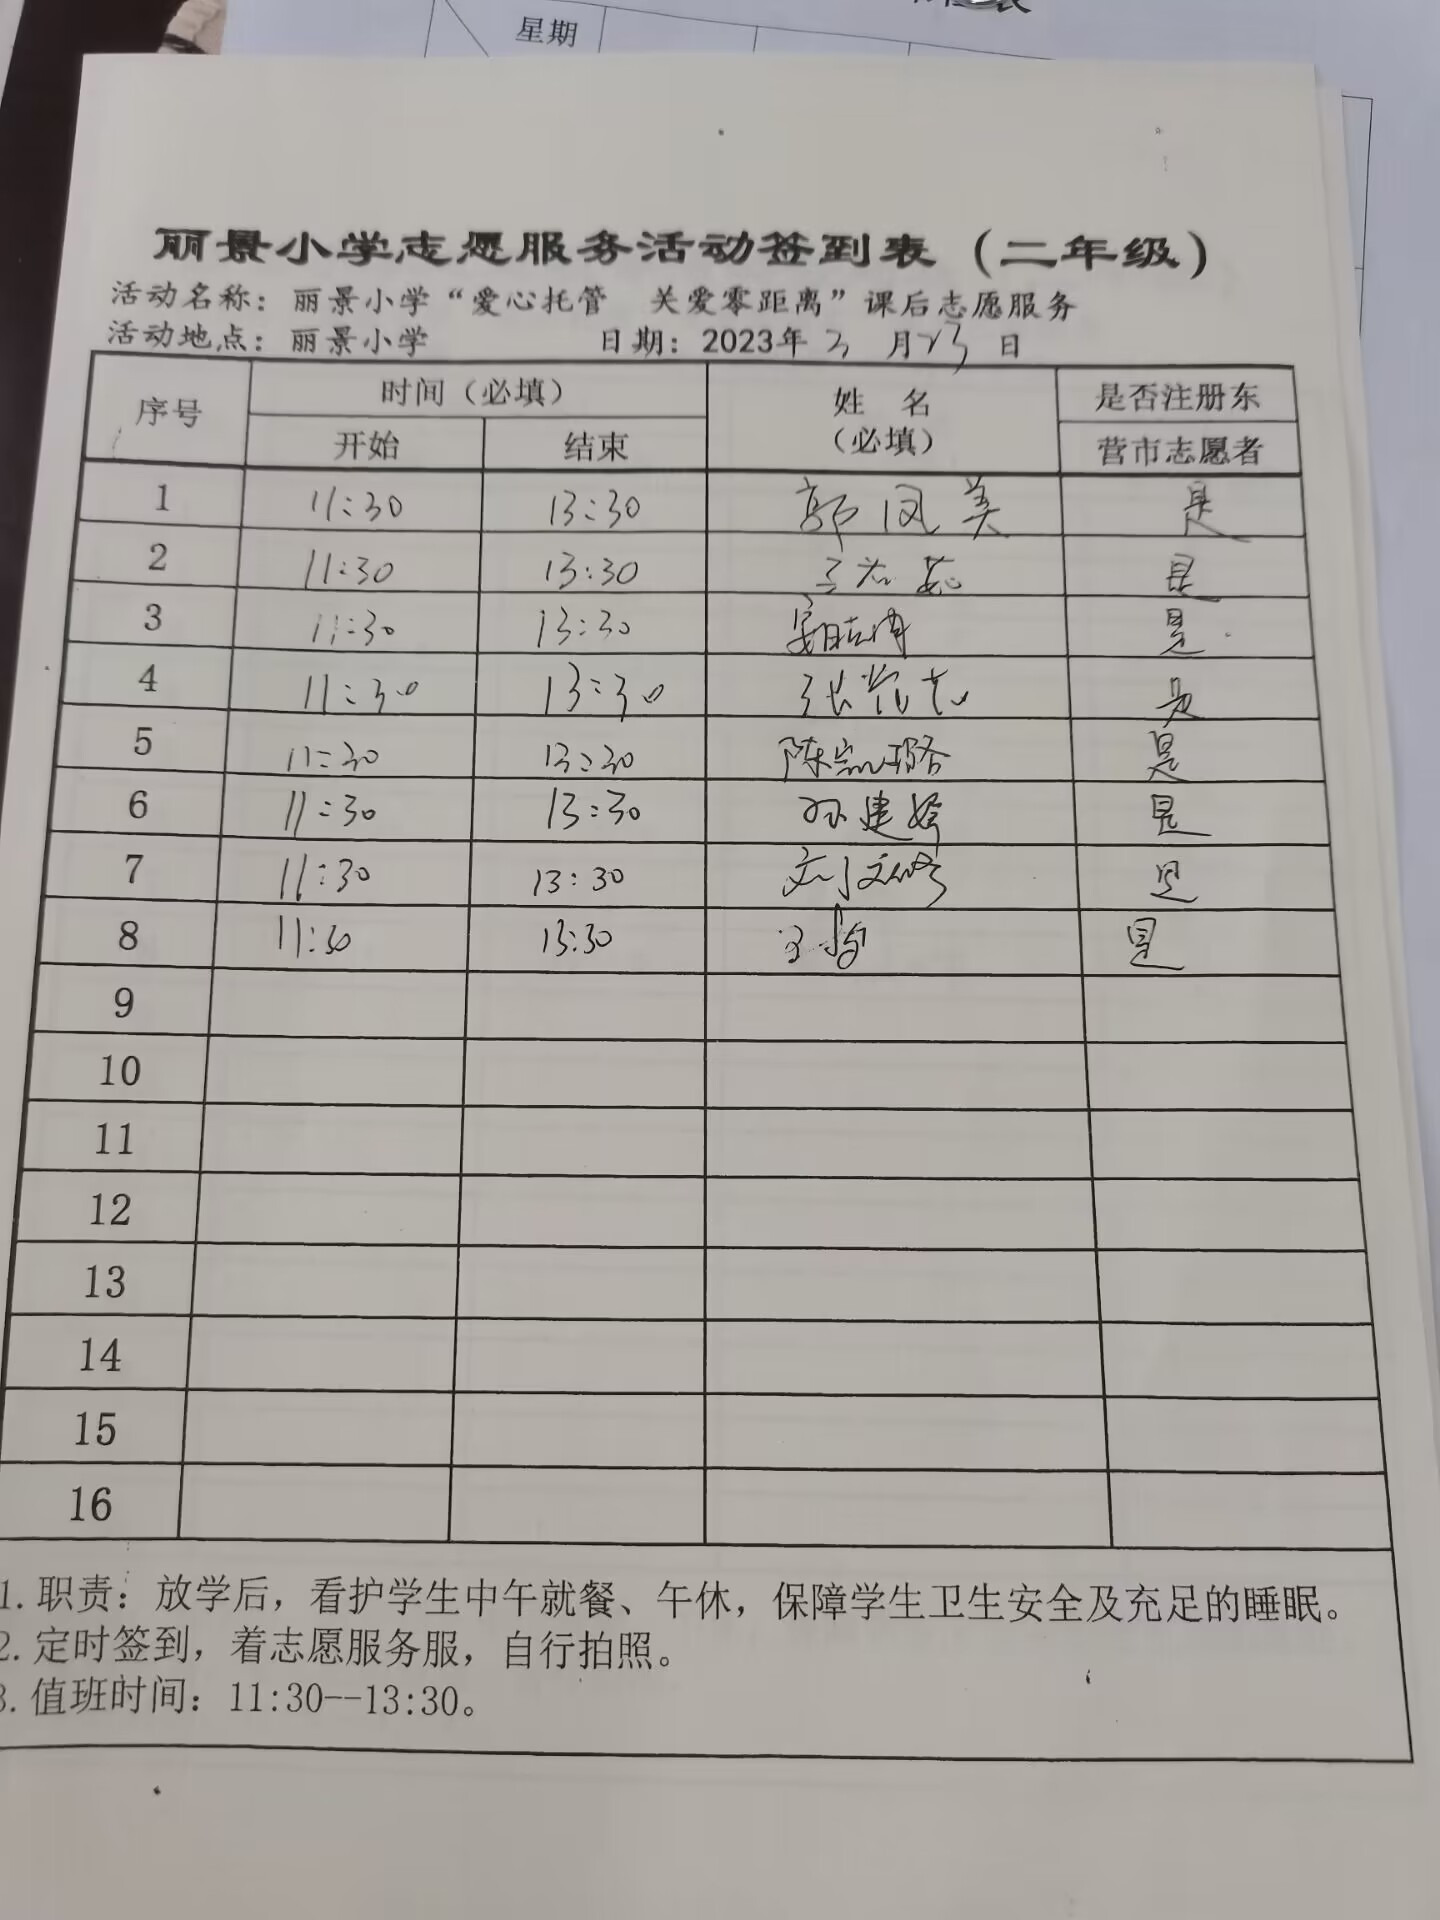 星期
丽景小学志愿服务活动签到表（二年级）
活动名称：丽景小学“爱心托管 关爱零距离”课后志愿服务
活动地点：丽景小学 日期：2023年3月23日
序号 时间（必填） 姓名（必填） 是否注册东营市志愿者
开始 结束
1 11:30 13:30 郭凤美 是
2 11:30 13:30 是
3 11:30 13:30 是
4 11:30 13:30 张 是
5 11:30 13:30 陈凯璐 是
6 11:30 13:30 孙建婷 是
7 11:30 13:30 刘文 是
8 11:30 13:30 王 是
9
10
11
12
13
14
15
16
1.职责：放学后，看护学生中午就餐、午休，保障学生卫生安全及充足的睡眠。
2.定时签到，着志愿服务服，自行拍照。
3.值班时间：11:30--13:30。